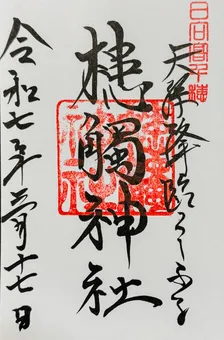 日向高千穂
天孫降臨くしふる
槵觸神社
令和七年三月十七日